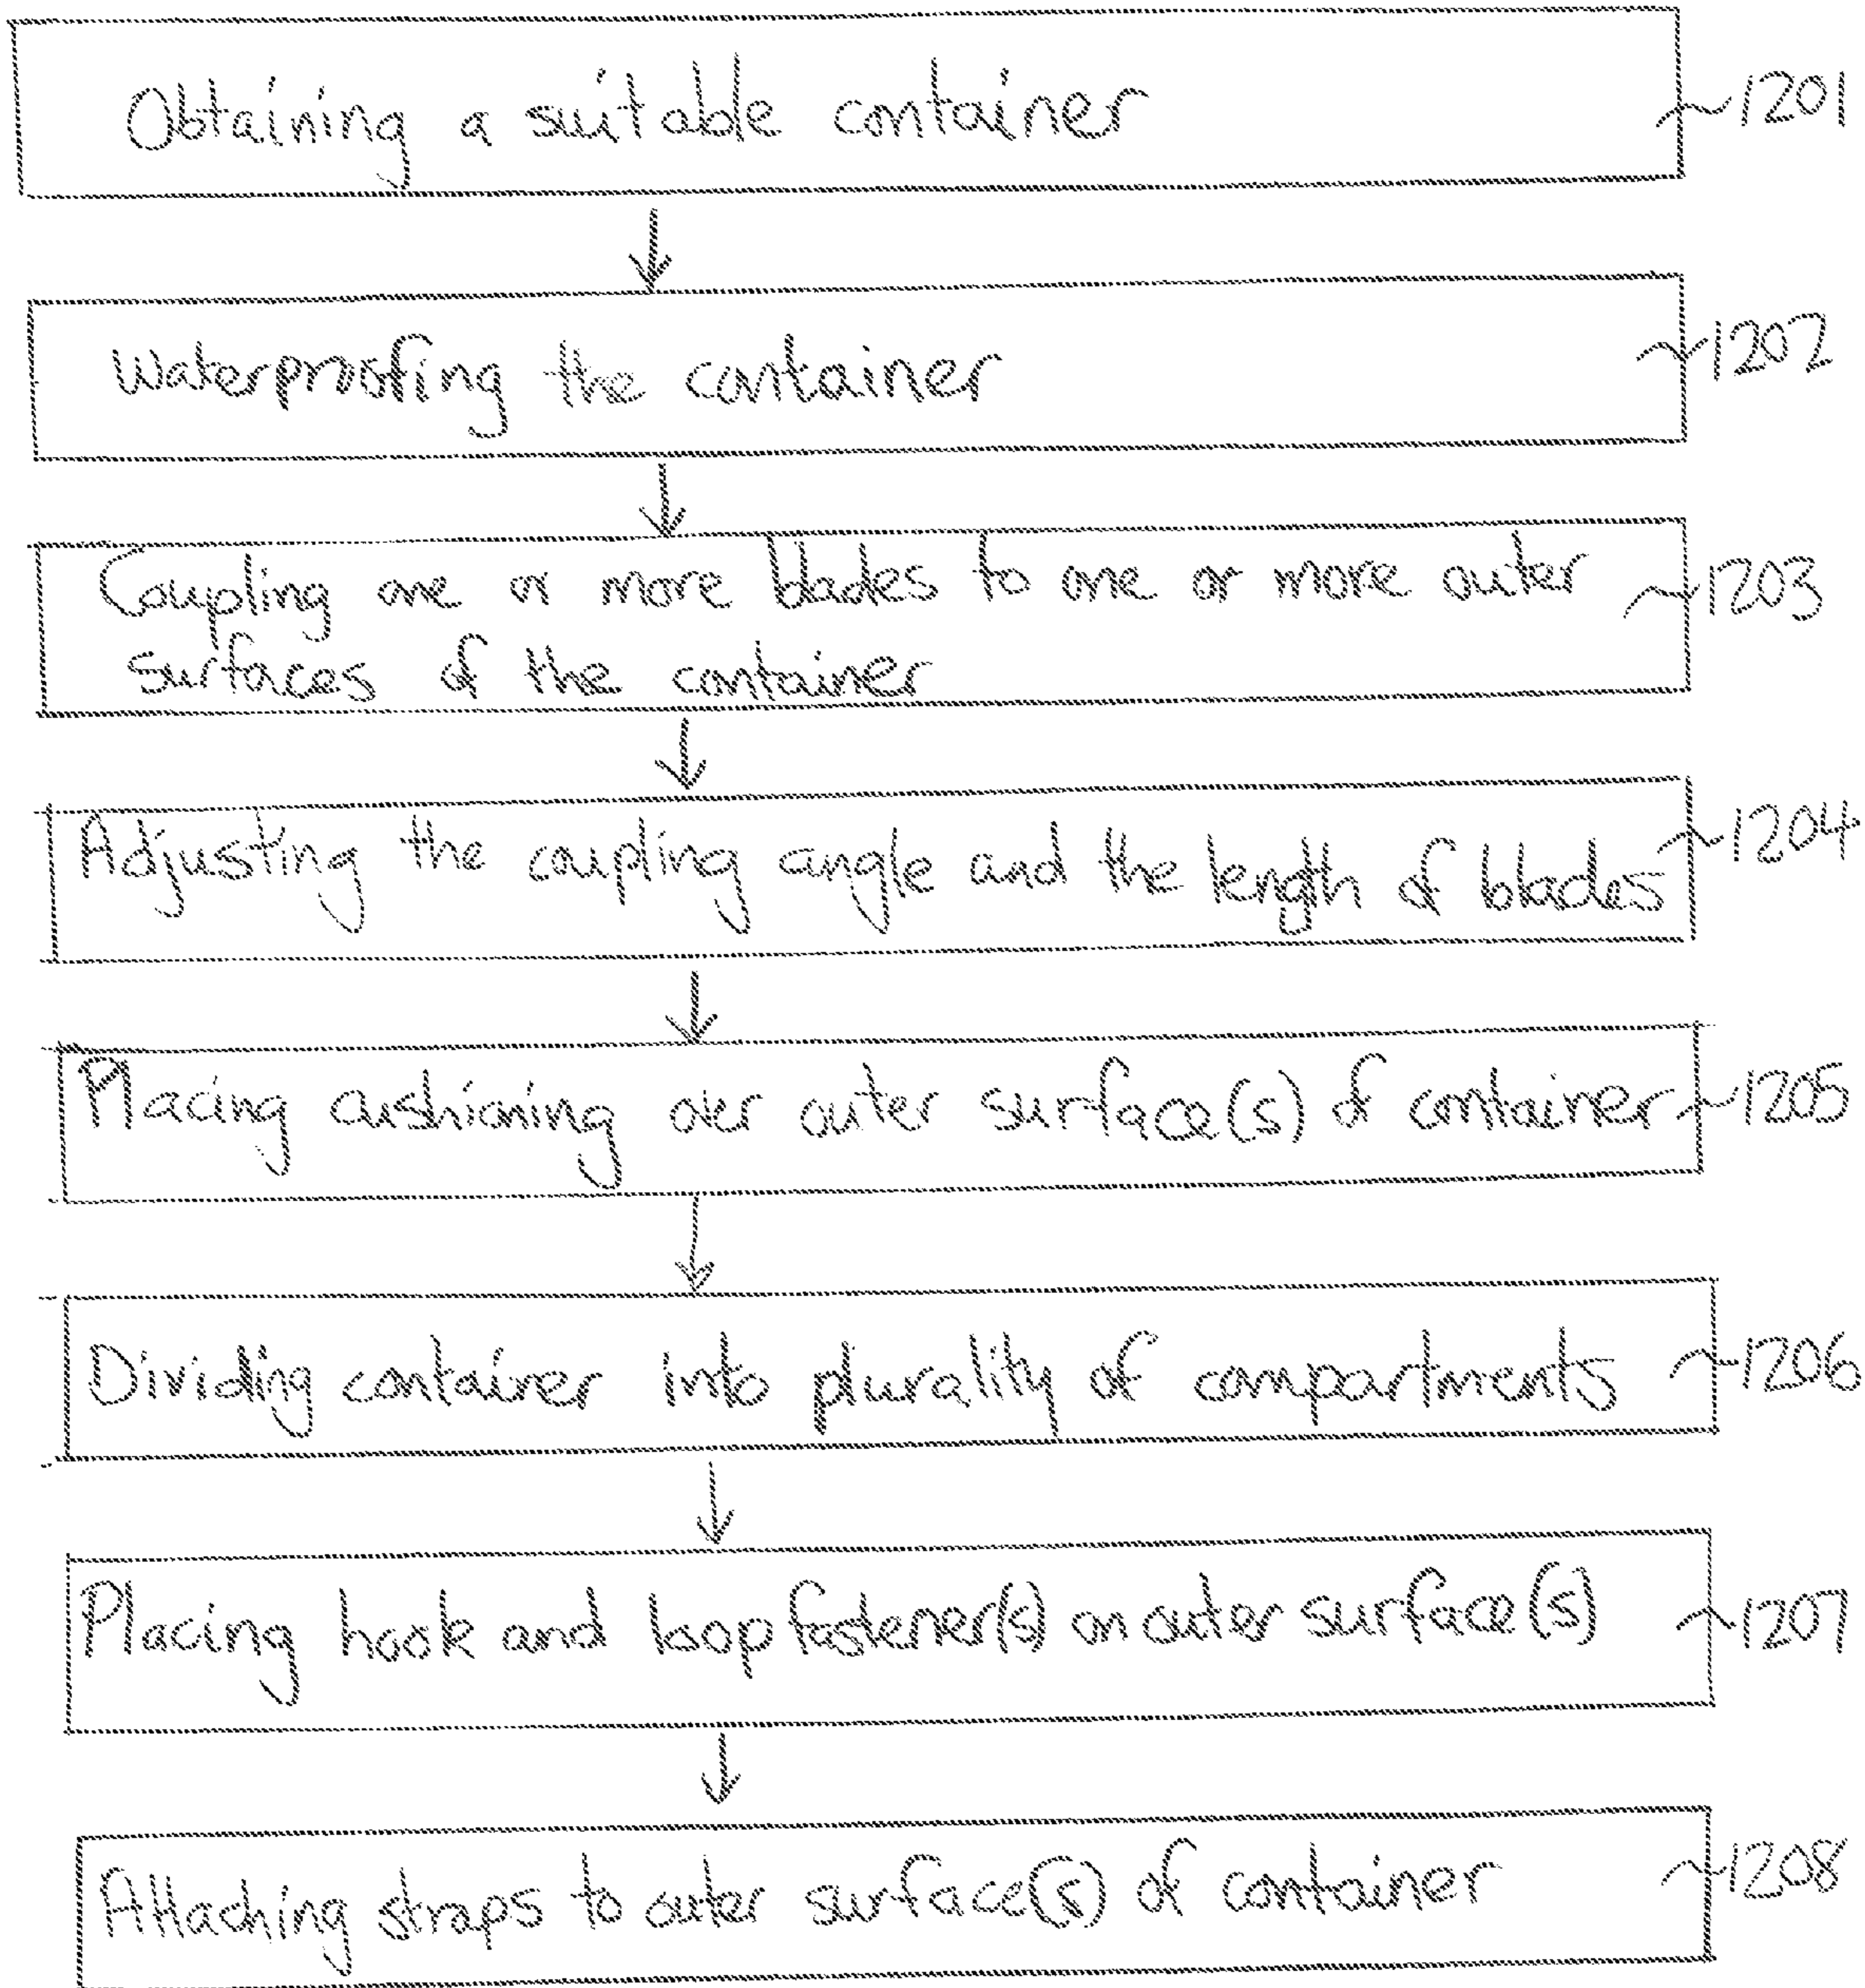 Obtaining a suitable container 1201
Waterproofing the container 1202
Coupling one or more blades to one or more outer 1203
surfaces of the container
Adjusting the coupling angle and the length of blades 1204
Placing cushioning over outer surface(s) of container 1205
Dividing container into plurality of compartments 1206
Placing hook and loop fastener(s) on outer surface(s) 1207
Attaching straps to outer surface(s) of container 1208